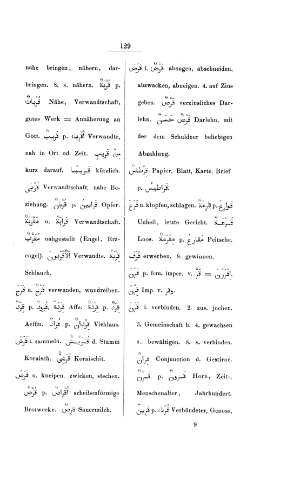 129
nahe bringen, nähern, dar-
bringen. 8. s. nähern. قُرْبَة p.
قُرُبَات Nähe, Verwandtschaft,
gutes Werk = Annäherung an
Gott. قَرِيب p. Verwandte,
nah in Ort od. Zeit. مِنْ قَرِيب
kurz darauf. قَرِيبًا kürzlich.
قُرْبَى Verwandtschaft, nahe Be-
ziehung. قُرْبَان p. قَرَابِين Opfer.
قَرَابَة u. Verwandtschaft.
مُقَرَّب nahgestellt (Engel, Erz-
engel). الأَقْرَبُون Verwandte. قِرْبَة
Schlauch.
verwunden, wundreiben.
Affe. p.
Aeffin. p. Viehlaus.
i. sammeln. قُرَيْش d. Stamm
Koraisch. قُرَشِي Koraischit.
قرص u. kneipen, zwicken, stechen.
قُرْص p. أَقْرَاص scheibenförmige
Brotwerke. Sauermilch.
قرض i. abnagen, abschneiden,
abzwacken, abzeigen. 4. auf Zins
geben. قَرْض verzinsliches Dar-
lehn. قَرْض حَسَن Darlehn, mit
der dem Schuldner beliebigen
Abzahlung.
قِرْطَاس Papier, Blatt, Karte, Brief
p. قَرَاطِيس.
قرع u. klopfen, schlagen. قَارِعَة p. قَوَارِع
Unheil, letzte Gericht. قُرْعَة
Loos. مِقْرَعَة p. مَقَارِع Peitsche.
erwerben. 8. gewinnen.
p. fem. imper. v.
Imp. v. وقر.
قرن i. verbinden. 2. aus. jochen.
3. Gemeinschaft h. 4. gewachsen
s. bewältigen. 8. s. verbinden.
قِرَان Conjunction d. Gestirne.
قَرْن p. قُرُون Horn, Zeit-,
Menschenalter, Jahrhundert.
قَرِين p. قُرَنَاء Verbündeter, Genosse,
9